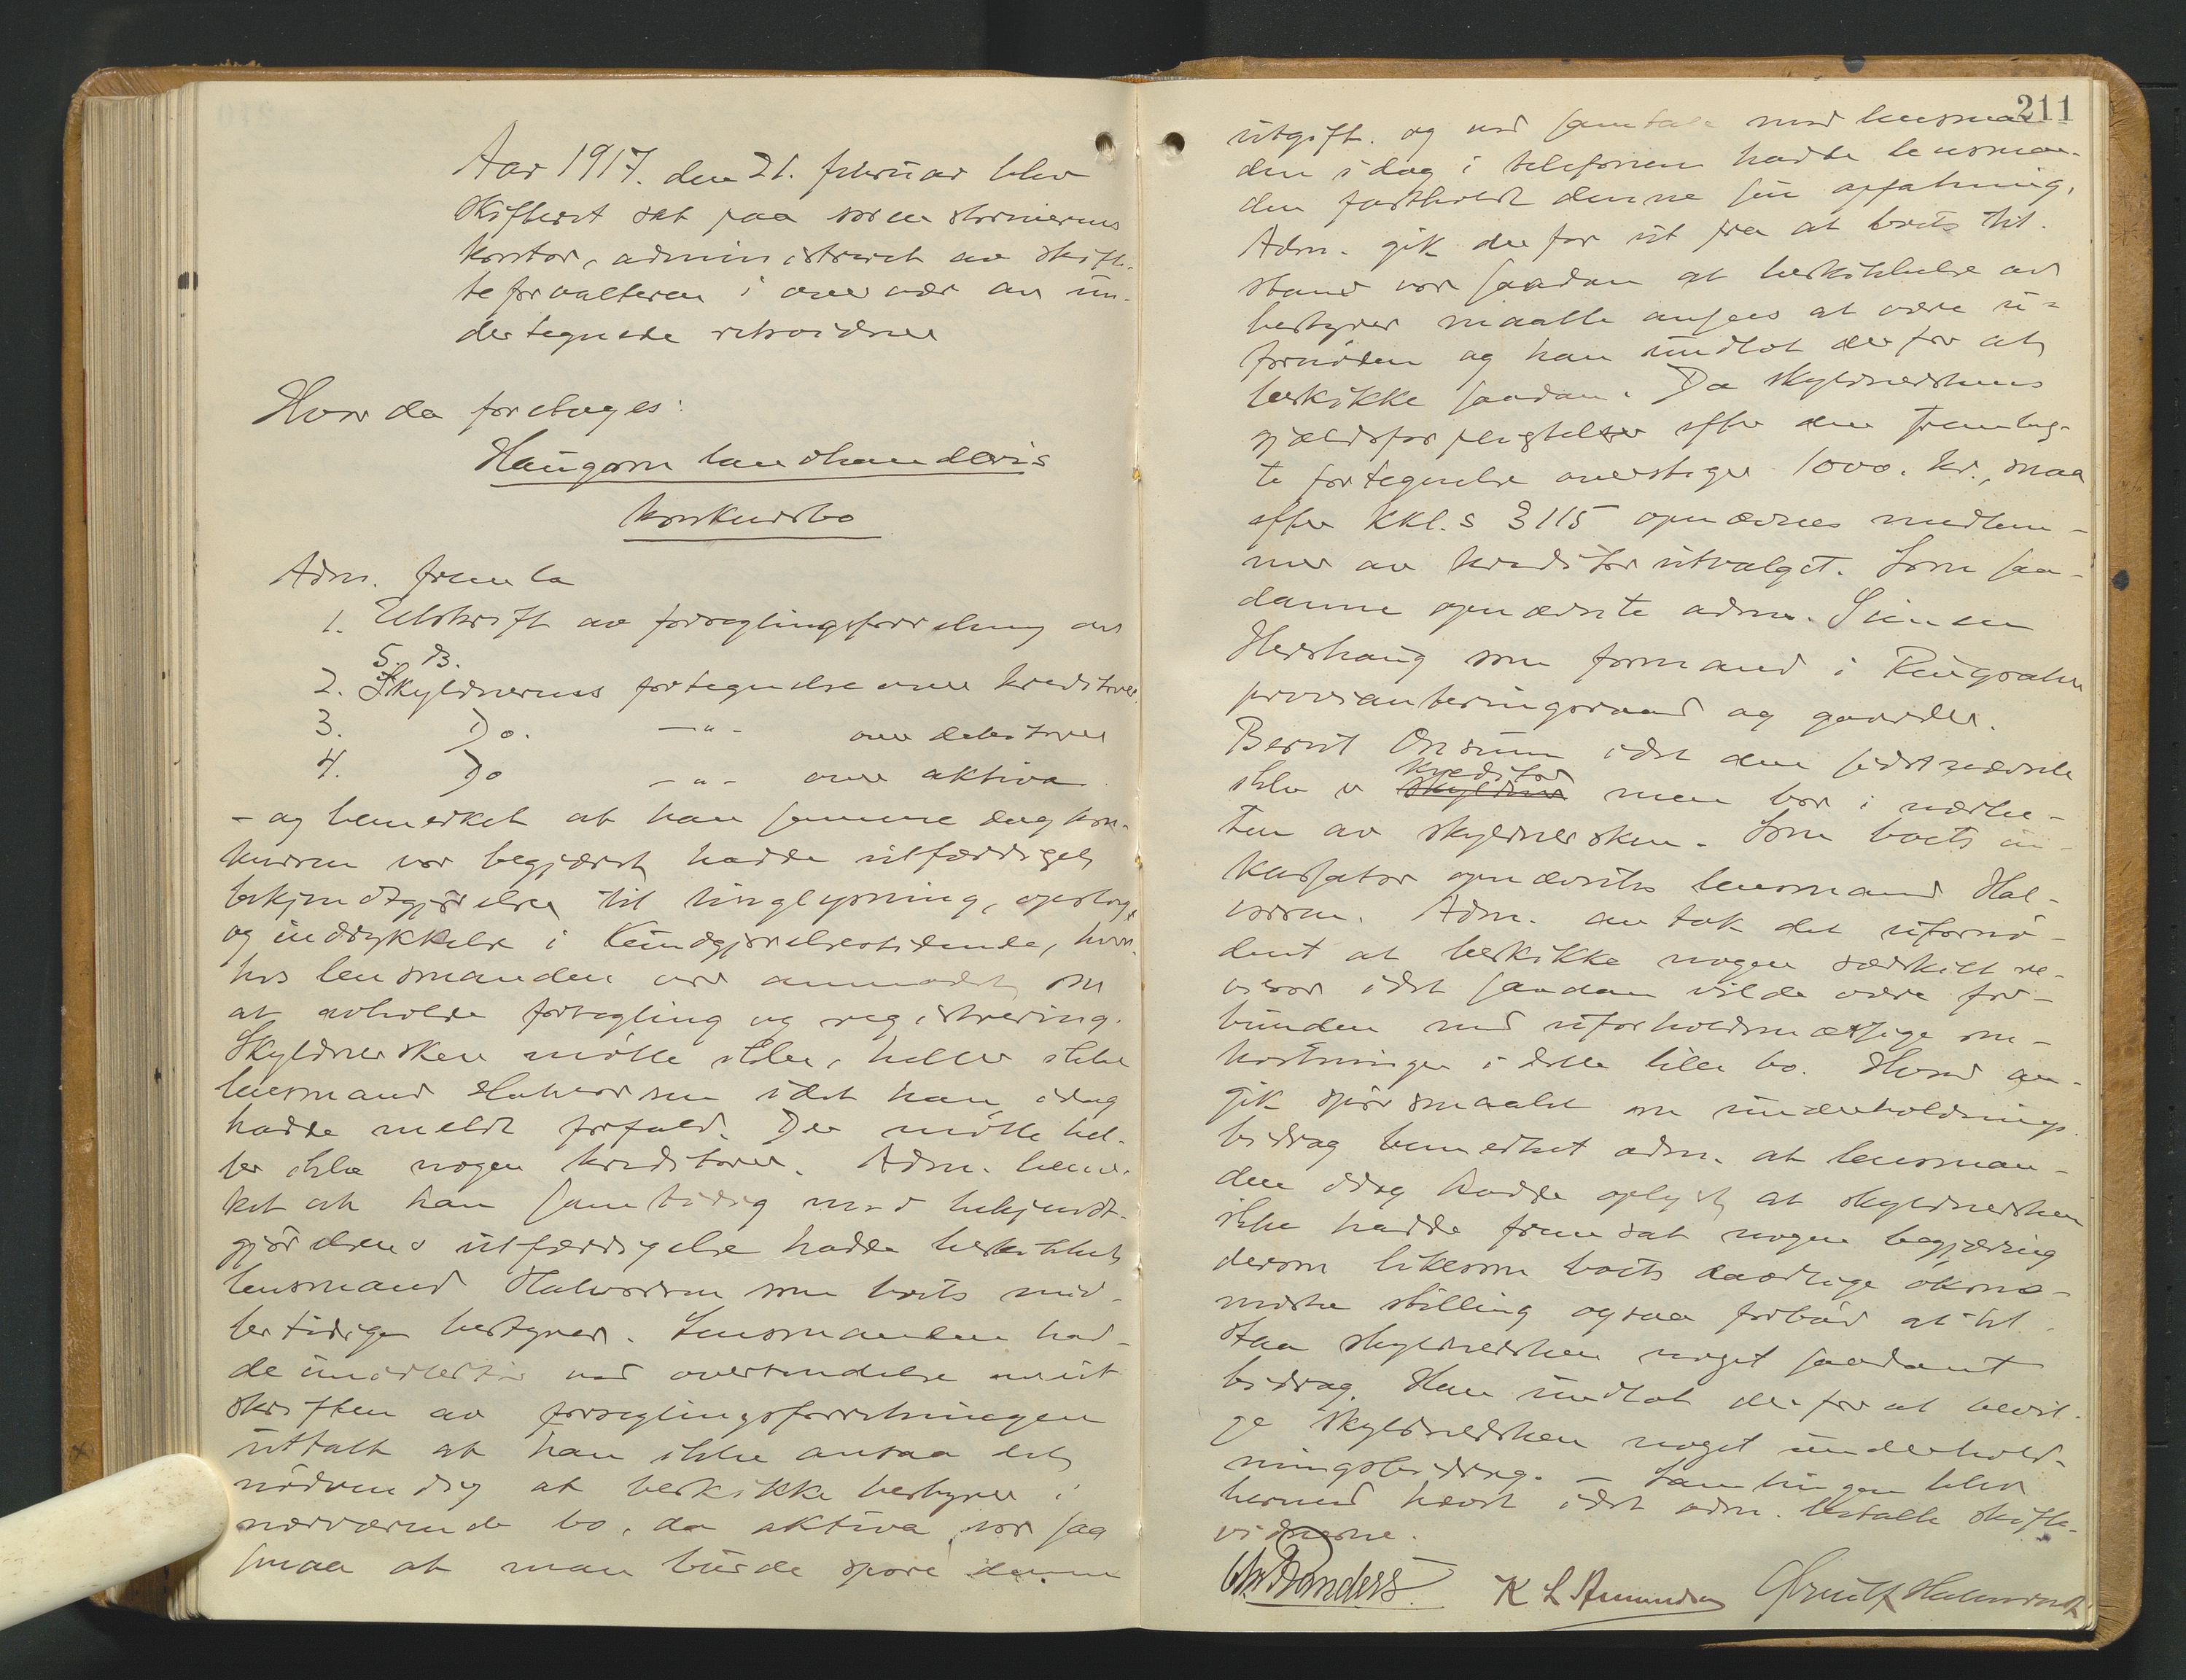 Aar 1917. den 21. februar blev
skifteret sat paa sorenskriverens
kontor, administreret av skift-
teforvalteren i overvær av un-
dertegnede retsvidner
Hvor da foretages:
Haugom landhanderis
konkursbo
Adm. fremla
1. Utskrift av forseglingsforretning av
5. ds.
2. Skyldnerens fortegnelse over kreditorer
3. Do. —"— over debitorer
4. Do —"— over aktiva
- og bemerket at han samme dag kon-
kursen var begjært hadde utfærdiget
bekjendtgjørelse til tinglysning, opslag
og indrykkelse i Kundgjørelsestidende, hvor-
hos lensmanden var anmodet om
at avholde forsegling og registrering.
Skyldnersken møtte ikke, heller ikke
lensmand Halvorsen idet han idag
hadde meldt forfald. Der møtte hel-
ler ikke nogen kreditorer. Adm. bemer-
ket at han samtidig med bekjendt-
gjørelsens utfærdigelse hadde beskikket
lensmand Halvorsen som boets mid-
lertidige bestyrer. Lensmanden had-
de imidlertid ved oversendelse av ut
skriften av forseglingsforretningen
uttalt at han ikke ansaa det
nødvendig at beskikke bestyrer i
nærværende bo, da aktiva var saa
smaa at man burde spare denne
211
utgift. og ved samtale med lensman-
den idag i telefonen hadde lensman-
den fastholdt denne sin opfatning.
Adm. gik derfor ut fra at boets til-
stand var saadan at beskikkelse av
bestyrer maatte ansees at være u-
fornøden og han undlot derfor at
beskikke saadan. Da skyldnerskens
gjældsforpligtelser efter den fremlag-
te fortegnelse overstiger 1000. kr., maa
efter kkl.s § 115 opnævnes medlem-
mer av kreditorutvalget. Som saa-
danne opnævnte adm. Simen
Hershaug som formand i Ringsaker
provianteringsraad og gaardbr.
Bernt Onsum idet den sidstnævnte
ikke er skyldner kreditor men bor i nærhe-
ten av skyldnersken. Som boets in-
kassator opnævntes lensmand Hal-
vorsen. Adm. antok det ufornø-
dent at beskikke nogen særskilt re-
visor idet saadan vilde være for-
bunden med uforholdsmæssige om-
kostninger i dette lille bo. Hvad an-
gik spørsmaalet om underholdnings-
bidrag bemerket adm. at lensman-
den idag hadde oplyst at skyldnersken
ikke hadde fremsat nogen begjæring
derom likesom boets daarlige økono-
miske stilling ogsaa forbød at til-
staa skyldnersken noget saadant
bidrag. Han undlot derfor at bevil-
ge skyldnersken noget underhold-
ningsbidrag. — Samlingen blev
hermed hævet idet adm. betalte skifte-
vidnerne.
Chr Randers. K L Amundsen Halvorsen